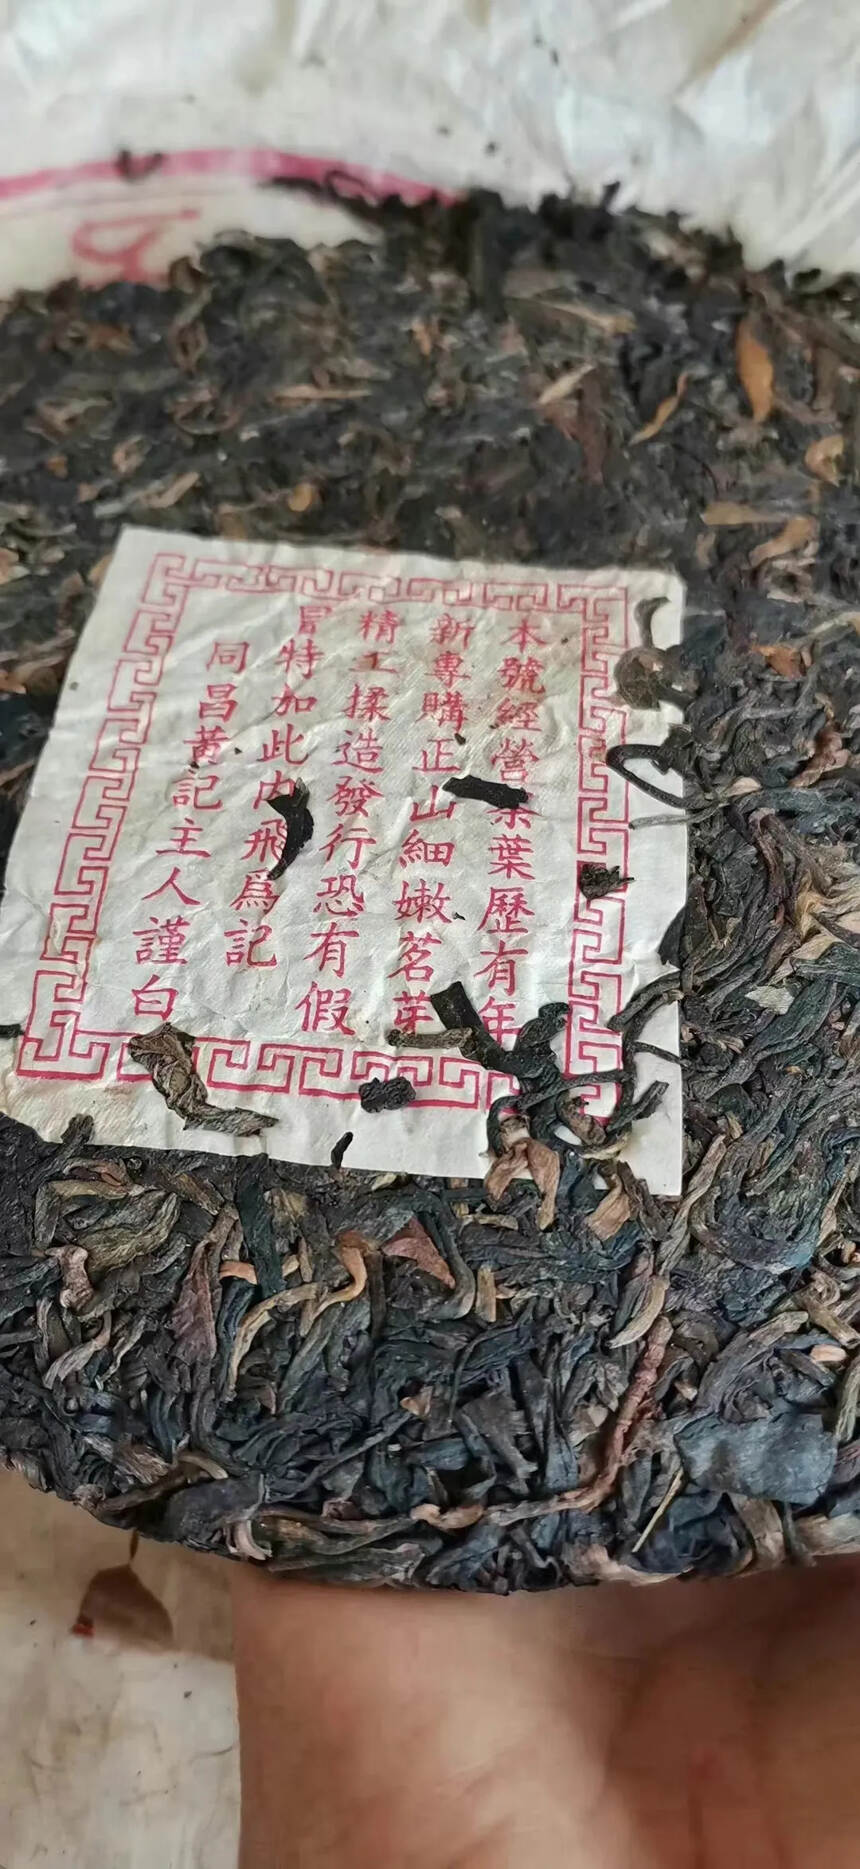 本號經營茶葉歷有年
新專購正山細嫩茗芽
精工揉造發行恐有假
冒特加此內飛爲記
同昌黃記主人謹白